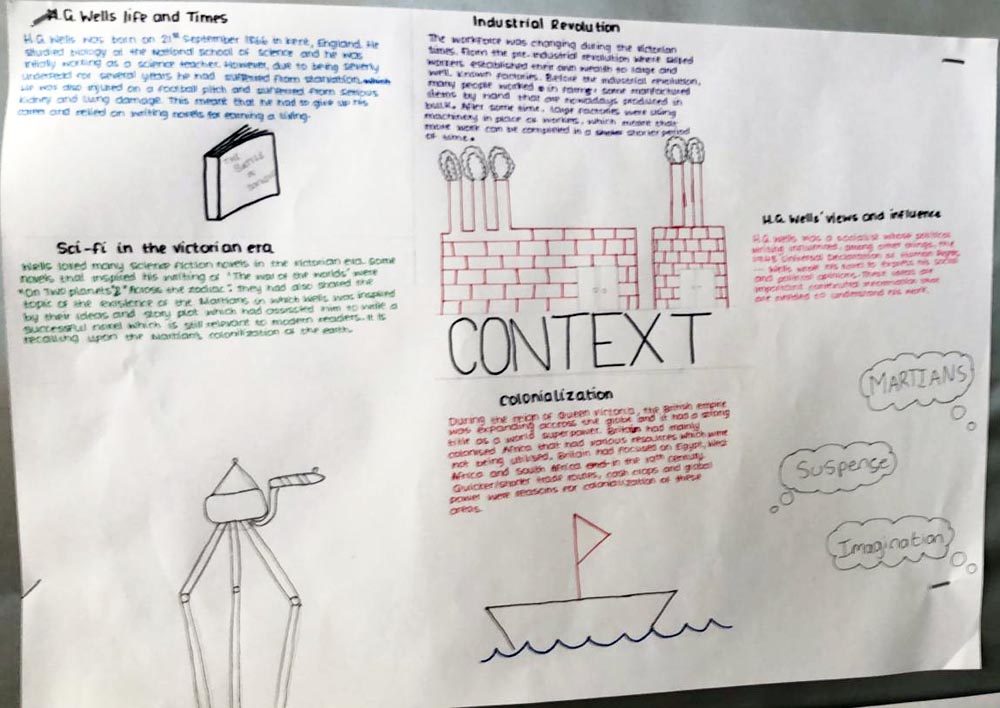 H.G. Wells life and Times
H.G. Wells was born on 21st September 1866 in Kent, England. He
studied biology at the National School of Science and he was
initially working as a science teacher. However, due to being severly
underfed for several years he had suffered from starvation, which
He was also injured on a football pitch and suffered from serious
kidney and lung damage. This meant that he had to give up his
career and relied on writing novels for earning a living.
THE
BATTLE
OF
Sci-fi in the victorian era
Wells loved many science fiction novels in the victorian era. Some
novels that inspired his writing of "The war of the worlds" were
"On Two planets" & "Across the zodiac". They had also shared the
topic of the existence of the Martians in which Wells was inspired
by their ideas and story plot which had assisted him to write a
successful novel which is still relevant to modern readers. It is
recalling upon the Martian's colonilization of the earth.
Industrial Revolution
The workforce was changing during the victorian
times. From the pre-industrial revolution where skilled
workers established their own wealth to large and
well known factories. Before the industrial revolution,
many people worked in farms; some manfactured
items by hand that are nowadays produced in
bulk. After some time, large factories were using
machinery in place of workers, which meant that
more work can be completed in a shorter period
of time.
CONTEXT
Colonialization
During the reign of Queen Victoria, the British empire
was expanding accross the globe and it had a strong
title as a world superpower. Britain had mainly
colonised Africa that had various resources which were
not being utilised. Britain had focused on Egypt, West
Africa and South Africa in the 19th century.
Quicker/shorter trade routes, cash crops and global
power were reasons for colonialization of these
areas.
H.G. Wells' views and influence
H.G. Wells was a socialist whose political
writing influenced, among other things, the
Universal Declaration of Human Rights
Wells his novel to express his social
and political opinions. These ideas are
important contextual information that
are needed to understand his work.
MARTIANS
Suspense
Imagination